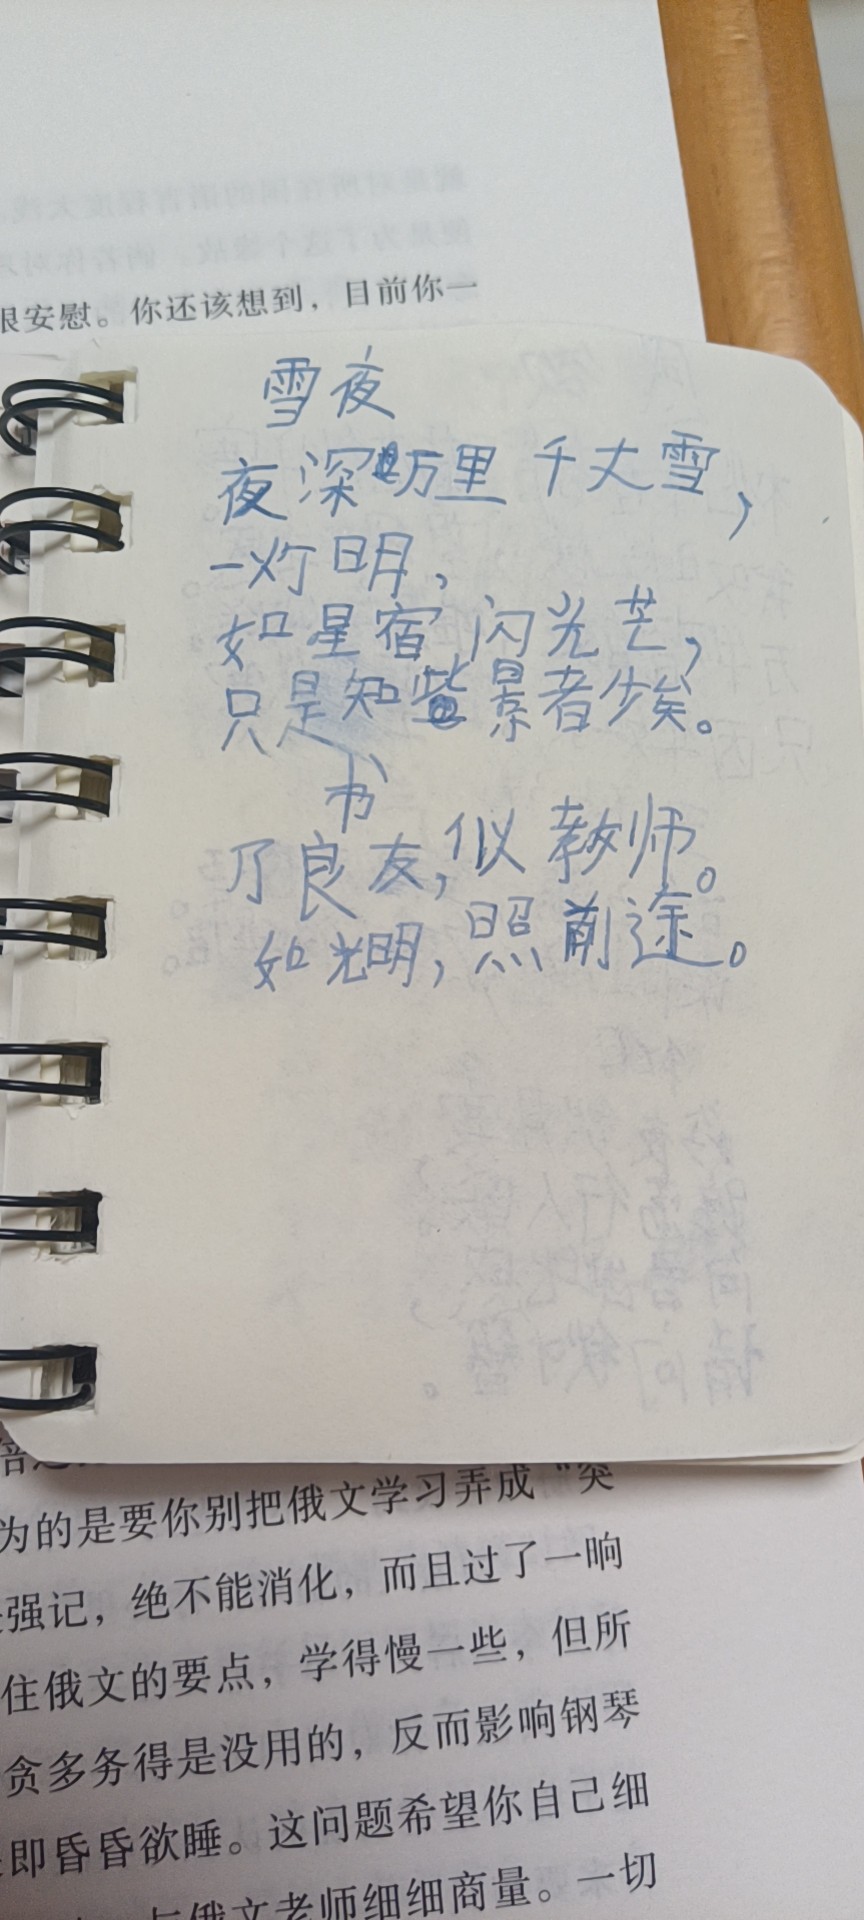 很安慰。你还该想到，目前你一
雪夜
夜深万里千丈雪，
一灯明，
如星宿闪光芒，
只是知景者少矣。
书
乃良友，似教师。
如光明，照前途。
为的是要你别把俄文学习弄成“突
强记，绝不能消化，而且过了一晌
住俄文的要点，学得慢一些，但所
贪多务得是没用的，反而影响钢琴
即昏昏欲睡。这问题希望你自己细
与俄文老师细细商量。一切